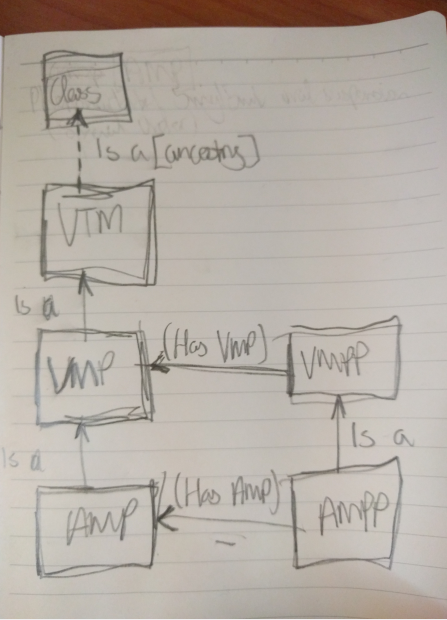 Class
Is a [ancestry]
VTM
Is a
VMP
(Has VMP)
VMPP
Is a
Is a
AMP
(Has AMP)
AMPP